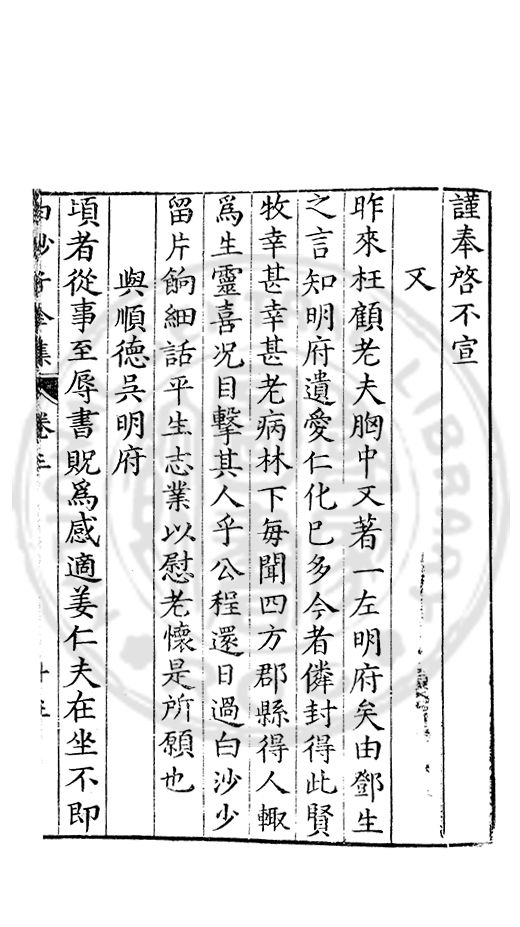 謹奉啓不宣
又
昨來枉顧老夫胸中又著一左明府矣由鄧生
之言知明府遺愛仁化已多今者隣封得此賢
牧幸甚幸甚老病林下每聞四方郡縣得人輙
爲生靈喜况目擊其人乎公程還日過白沙少
留片餉細話平生志業以慰老懷是所願也
與順德吳明府
項者從事至辱書貺爲感適姜仁夫在坐不即
白沙子全集 卷三
LIBRARY